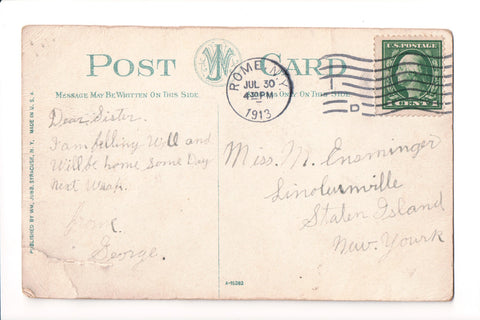 POST CARD
MESSAGE MAY BE WRITTEN ON THIS SIDE
ONLY ON THIS SIDE
ROME N.Y.
JUL 30
4 PM
1913
D
U.S. POSTAGE
CENTS
Dear Sister.
I am felling Well and
Will be home Some Day
Next Weak.
from
George.
Miss. M. Ensminger
Linolumville
Staten Island
New. Yourk
PUBLISHED BY WM. JUBB, SYRACUSE, N. Y. MADE IN U. S. A.